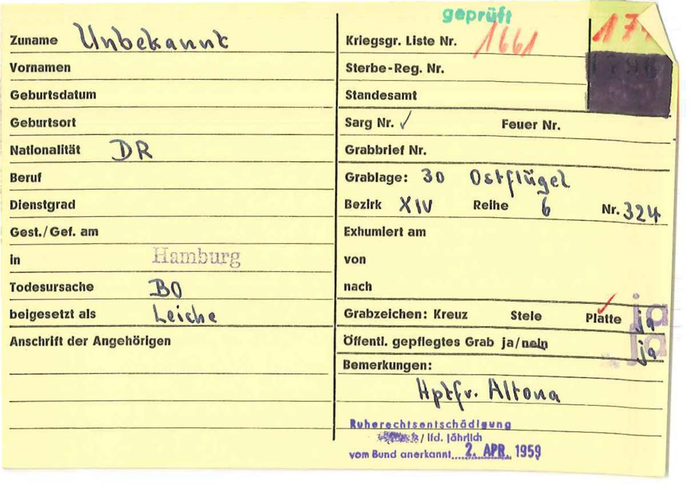 geprüft
Zuname Unbekannt
Vornamen
Geburtsdatum
Geburtsort
Nationalität DR
Beruf
Dienstgrad
Gest./Gef. am
in Hamburg
Todesursache BO
beigesetzt als Leiche
Anschrift der Angehörigen
Kriegsgr. Liste Nr. 1661
Sterbe-Reg. Nr.
Standesamt
Sarg Nr. ✓ Feuer Nr.
Grabbrief Nr.
Grablage: 30 Ostflügel
Bezirk XIV Reihe 6 Nr. 324
Exhumiert am
von
nach
Grabzeichen: Kreuz Stele Platte ja ja
Öffentl. gepflegtes Grab ja/nein ja ja
Bemerkungen:
Hptfr. Altona
Ruherechtsentschädigung
/ lfd. jährlich
vom Bund anerkannt 2. APR. 1959